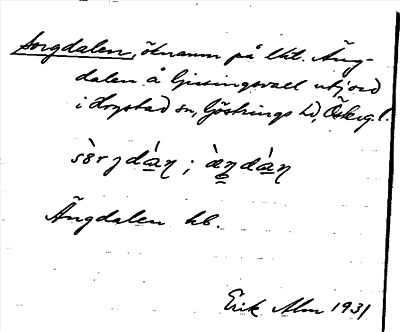 Sorgdalen, öknamn på lht. Äng-
dalen å Gissingsvall utjord
i Hogstad sn, Göstrings hd, Östergl.
sòrɡdáɳ ; æ̀ŋdáɳ
Ängdalen kb.
Erik Alm 1931